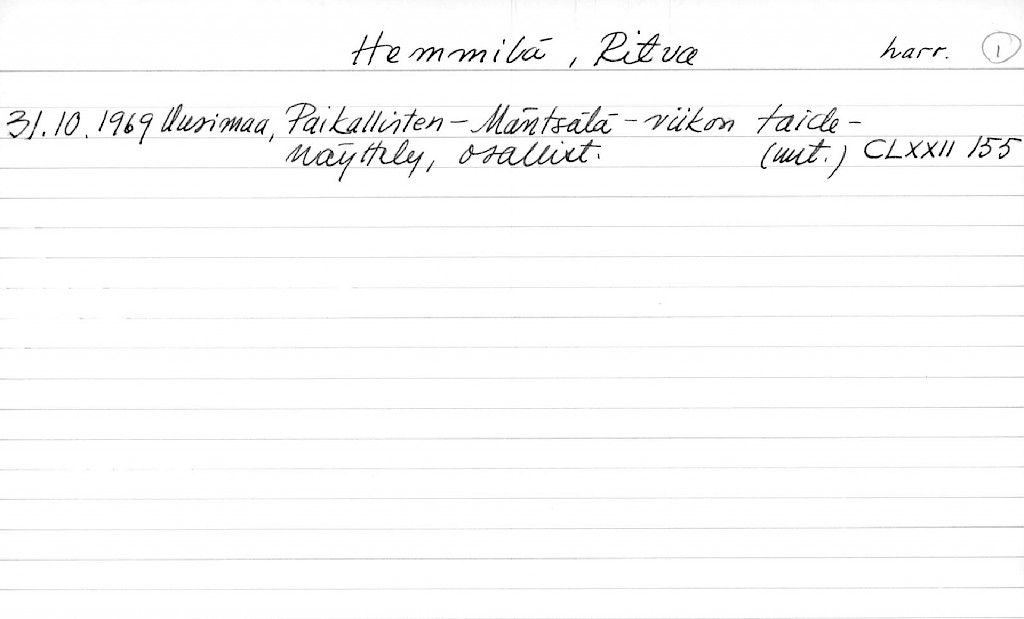 Hemmilä, Ritva harr. 1
31.10.1969 Uusimaa, Paikallisten - Mäntsälä - viikon taide-
näyttely, osallist. (uut.) CLXXII 155